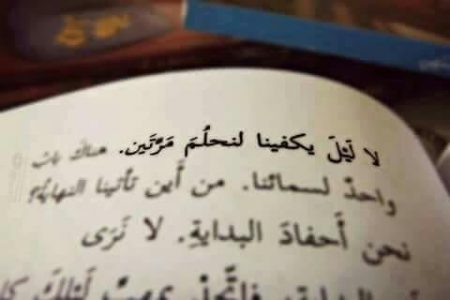 لا لَيْلَ يكفينا لنحلُمَ مَرَّتَين. هناك باب
واحدٌ لسمائنا. من أَين تأتينا النهايةُ؟
نحن أَحفادَ البدايةِ. لا نَرَى